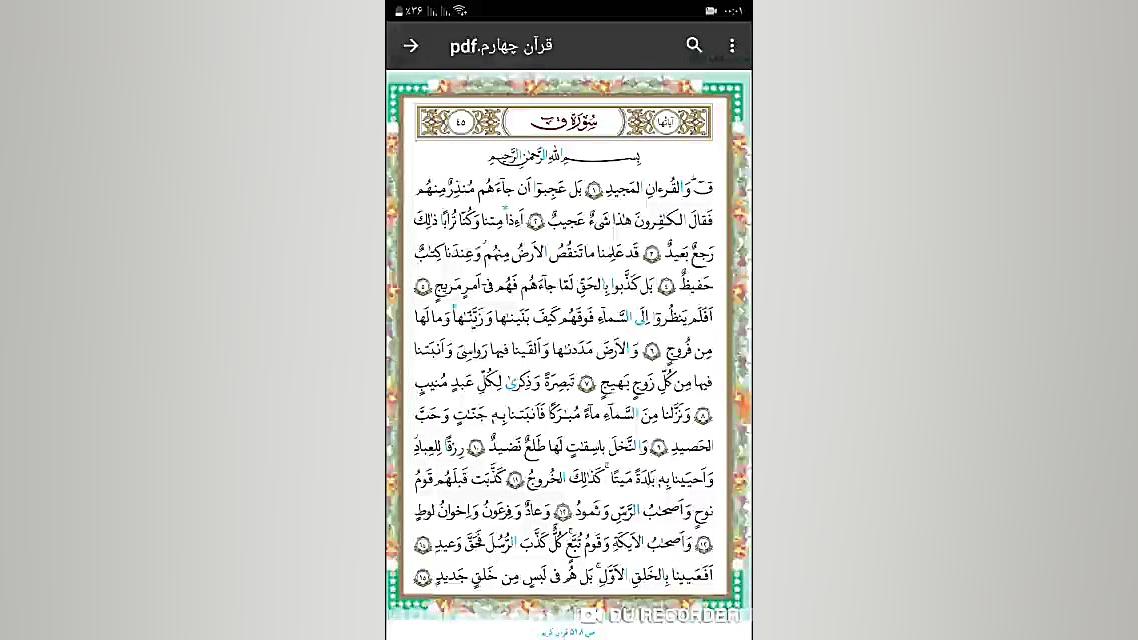 ٪۳۶ ۰۰:۰۱
قرآن چهارم.pdf
آیاتها سُورَة ق ٤٥
بِسمِ اللهِ الرَّحمٰنِ الرَّحیمِ
قٓ ۚ وَالقُرءانِ المَجیدِ ﴿١﴾ بَل عَجِبوٓا اَن جآءَهُم مُنذِرٌ مِنهُم
فَقالَ الکٰفِرونَ هٰذا شَیءٌ عَجیبٌ ﴿٢﴾ اَءِذا مِتنا وَکُنّا تُرابًا ذٰلِكَ
رَجعٌ بَعیدٌ ﴿٣﴾ قَد عَلِمنا ما تَنقُصُ الاَرضُ مِنهُم وَعِندَنا کِتٰبٌ
حَفیظٌ ﴿٤﴾ بَل کَذَّبوا بِالحَقِّ لَمّا جآءَهُم فَهُم فیٓ اَمرٍ مَریجٍ ﴿٥﴾
اَفَلَم یَنظُروٓا اِلَی السَّمآءِ فَوقَهُم کَیفَ بَنَینٰها وَزَیَّنّٰها وَما لَها
مِن فُروجٍ ﴿٦﴾ وَالاَرضَ مَدَدنٰها وَاَلقَینا فیها رَواسِیَ وَاَنبَتنا
فیها مِن کُلِّ زَوجٍ بَهیجٍ ﴿٧﴾ تَبصِرَةً وَذِکریٰ لِکُلِّ عَبدٍ مُنیبٍ
﴿٨﴾ وَنَزَّلنا مِنَ السَّمآءِ مآءً مُبٰرَکًا فَاَنبَتنا بِهٖ جَنّٰتٍ وَحَبَّ
الحَصیدِ ﴿٩﴾ وَالنَّخلَ باسِقٰتٍ لَها طَلعٌ نَضیدٌ ﴿١٠﴾ رِزقًا لِلعِبادِ
وَاَحیَینا بِهٖ بَلدَةً مَیتًا ۚ کَذٰلِكَ الخُروجُ ﴿١١﴾ کَذَّبَت قَبلَهُم قَومُ
نوحٍ وَاَصحٰبُ الرَّسِّ وَثَمودُ ﴿١٢﴾ وَعادٌ وَفِرعَونُ وَاِخوانُ لوطٍ
﴿١٣﴾ وَاَصحٰبُ الاَیکَةِ وَقَومُ تُبَّعٍ ۚ کُلٌّ کَذَّبَ الرُّسُلَ فَحَقَّ وَعیدِ ﴿١٤﴾
اَفَعَیینا بِالخَلقِ الاَوَّلِ ۚ بَل هُم فی لَبسٍ مِن خَلقٍ جَدیدٍ ﴿١٥﴾
DU RECORDER
ص ۵۱۸ قرآن کریم